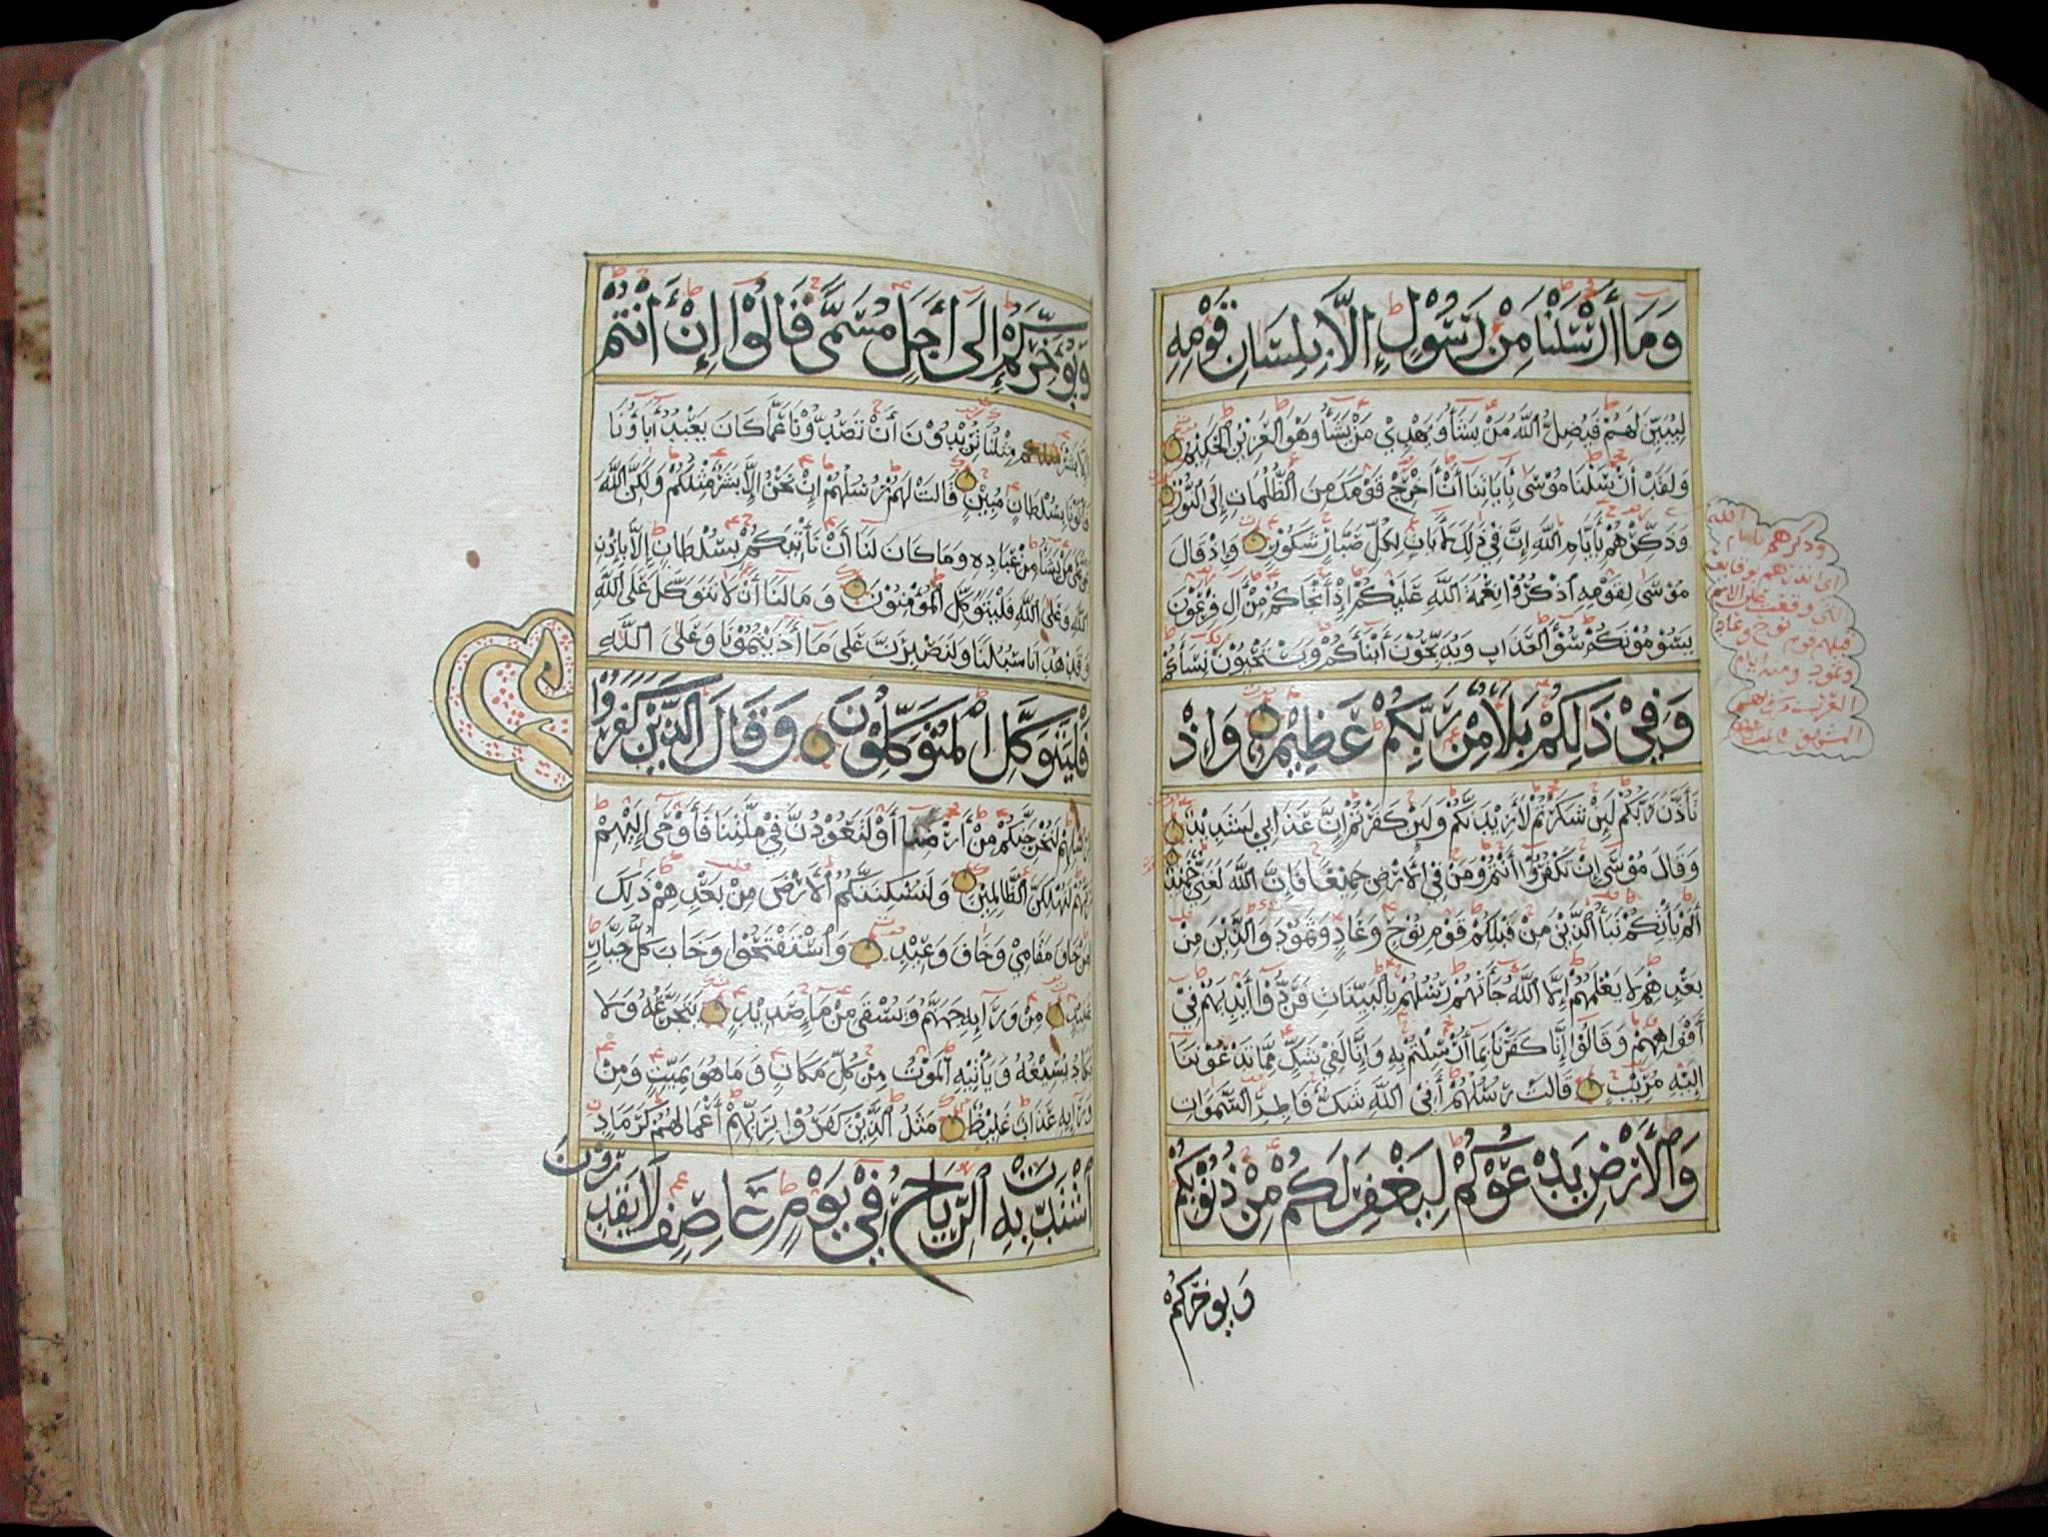 وَمَا أَرْسَلْنَا مِنْ رَسُوْلٍ إِلَّا بِلِسَانِ قَوْمِهِ
لِيُبَيِّنَ لَهُمْ فَيُضِلُّ اللَّهُ مَنْ يَشَأُ وَيَهْدِيْ مَنْ يَشَأُ وَهُوَ الْعَزِيْزُ الْحَكِيْمُ
وَلَقَدْ أَرْسَلْنَا مُوْسَى بِأَيَاتِنَا أَنْ أَخْرِجْ قَوْمَكَ مِنَ الظُّلُمَاتِ إِلَى النُّوْرِ
وَذَكِّرْهُمْ بِأَيَّامِ اللَّهِ إِنَّ فِيْ ذَلِكَ لَأَيَاتٍ لِكُلِّ صَبَّارٍ شَكُوْرٍ وَإِذْ قَالَ
مُوْسَى لِقَوْمِهِ اذْكُرُوْا نِعْمَةَ اللَّهِ عَلَيْكُمْ إِذْ أَنْجَاكُمْ مِنْ آلِ فِرْعَوْنَ
يَسُوْمُوْنَكُمْ سُوْأَ الْعَذَابِ وَيُذَبِّحُوْنَ أَبْنَأَكُمْ وَيَسْتَحْيُوْنَ نِسَأَكُمْ
وَفِيْ ذَلِكُمْ بَلَأٌ مِنْ رَبِّكُمْ عَظِيْمٌ وَإِذْ
تَأَذَّنَ رَبُّكُمْ لَئِنْ شَكَرْتُمْ لَأَزِيْدَنَّكُمْ وَلَئِنْ كَفَرْتُمْ إِنَّ عَذَابِي لَشَدِيْدٌ
وَقَالَ مُوْسَى إِنْ تَكْفُرُوْا أَنْتُمْ وَمَنْ فِي الْأَرْضِ جَمِيْعًا فَإِنَّ اللَّهَ لَغَنِيٌّ حَمِيْدٌ
أَلَمْ يَأْتِكُمْ نَبَأُ الَّذِيْنَ مِنْ قَبْلِكُمْ قَوْمِ نُوْحٍ وَعَادٍ وَثَمُوْدَ وَالَّذِيْنَ مِنْ
بَعْدِهِمْ لَا يَعْلَمُهُمْ إِلَّا اللَّهُ جَأَتْهُمْ رُسُلُهُمْ بِالْبَيِّنَاتِ فَرَدُّوْا أَيْدِيَهُمْ فِيْ
أَفْوَاهِهِمْ وَقَالُوْا إِنَّا كَفَرْنَا بِمَا أُرْسِلْتُمْ بِهِ وَإِنَّا لَفِيْ شَكٍّ مِمَّا تَدْعُوْنَنَا
إِلَيْهِ مُرِيْبٍ قَالَتْ رُسُلُهُمْ أَفِي اللَّهِ شَكٌّ فَاطِرِ السَّمَوَاتِ
وَالْأَرْضِ يَدْعُوْكُمْ لِيَغْفِرَ لَكُمْ مِنْ ذُنُوْبِكُمْ
وَيُوَخِّرَكُمْ
وذكرهم بايام الله
اي انذرهم بوقايعه
التي وقعت على الامم
قبلهم قوم نوح وعاد
وثمود ومنه ايام
العرب
وَيُوَخِّرَكُمْ إِلَى أَجَلٍ مُسَمًّى قَالُوْا إِنْ أَنْتُمْ
إِلَّا بَشَرٌ مِثْلُنَا تُرِيْدُوْنَ أَنْ تَصُدُّوْنَا عَمَّا كَانَ يَعْبُدُ أَبَاؤُنَا
فَأْتُوْنَا بِسُلْطَانٍ مُبِيْنٍ قَالَتْ لَهُمْ رُسُلُهُمْ إِنْ نَحْنُ إِلَّا بَشَرٌ مِثْلُكُمْ وَلَكِنَّ اللَّهَ
يَمُنُّ عَلَى مَنْ يَشَأُ مِنْ عِبَادِهِ وَمَا كَانَ لَنَا أَنْ نَأْتِيَكُمْ بِسُلْطَانٍ إِلَّا بِإِذْنِ
اللَّهِ وَعَلَى اللَّهِ فَلْيَتَوَكَّلِ الْمُؤْمِنُوْنَ وَمَا لَنَا أَنْ لَا نَتَوَكَّلَ عَلَى اللَّهِ
وَقَدْ هَدَانَا سُبُلَنَا وَلَنَصْبِرَنَّ عَلَى مَا أَذَيْتُمُوْنَا وَعَلَى اللَّهِ
فَلْيَتَوَكَّلِ الْمُتَوَكِّلُوْنَ وَقَالَ الَّذِيْنَ كَفَرُوْا
لِرُسُلِهِمْ لَنُخْرِجَنَّكُمْ مِنْ أَرْضِنَا أَوْ لَتَعُوْدُنَّ فِيْ مِلَّتِنَا فَأَوْحَى إِلَيْهِمْ
رَبُّهُمْ لَنُهْلِكَنَّ الظَّالِمِيْنَ وَلَنُسْكِنَنَّكُمُ الْأَرْضَ مِنْ بَعْدِهِمْ ذَلِكَ
لِمَنْ خَافَ مَقَامِيْ وَخَافَ وَعِيْدِ وَاسْتَفْتَحُوْا وَخَابَ كُلُّ جَبَّارٍ
عَنِيْدٍ مِنْ وَرَآئِهِ جَهَنَّمُ وَيُسْقَى مِنْ مَاءٍ صَدِيْدٍ يَتَجَرَّعُهُ وَلَا
يَكَادُ يُسِيْغُهُ وَيَأْتِيْهِ الْمَوْتُ مِنْ كُلِّ مَكَانٍ وَمَا هُوَ بِمَيِّتٍ وَمِنْ
وَرَآئِهِ عَذَابٌ غَلِيْظٌ مَثَلُ الَّذِيْنَ كَفَرُوْا بِرَبِّهِمْ أَعْمَالُهُمْ كَرَمَادٍ
اشْتَدَّتْ بِهِ الرِّيَاحُ فِيْ يَوْمٍ عَاصِفٍ لَا يَقْدِرُوْنَ